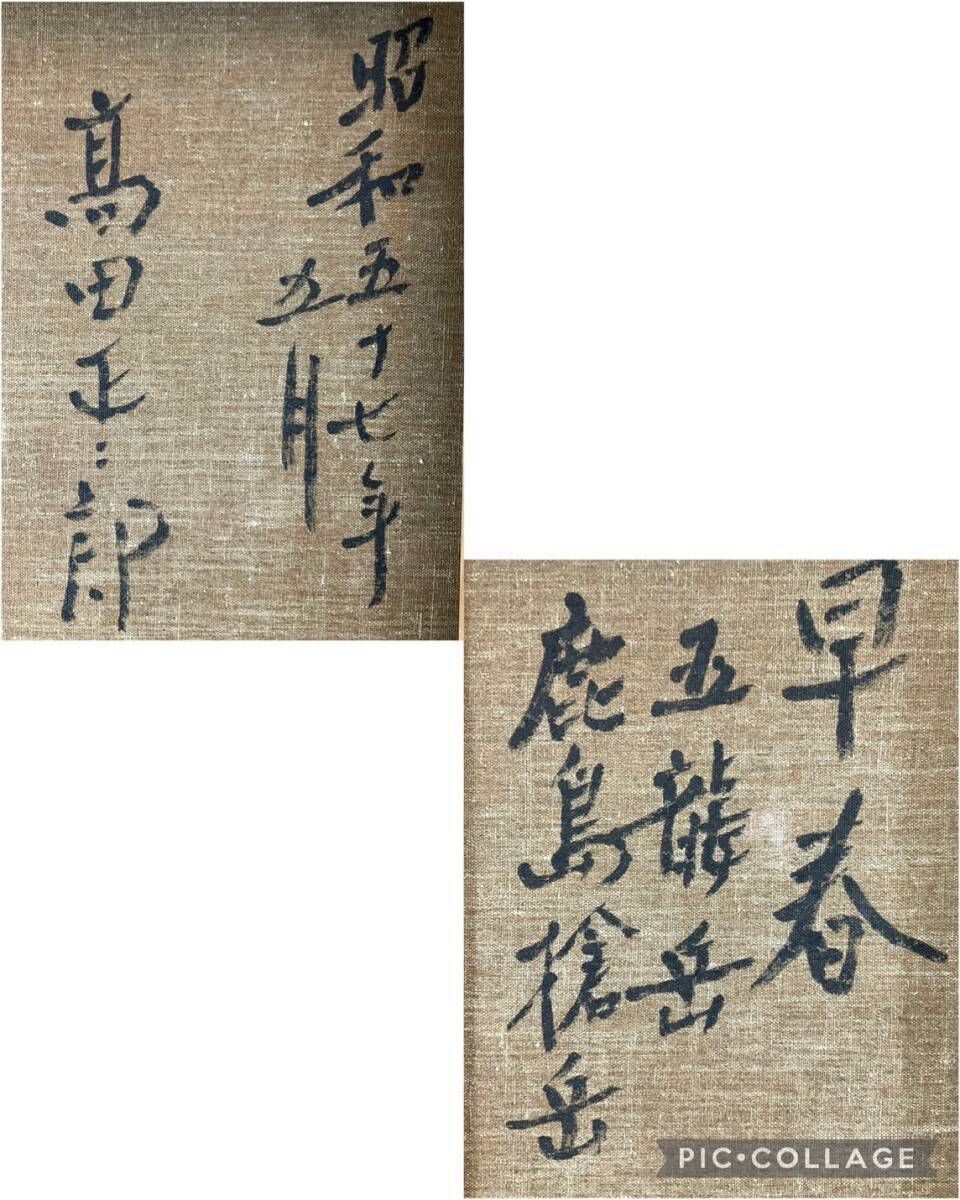 昭和五十七年
五月
髙田正二郎
早春
五龍岳
鹿島槍岳
PIC•COLLAGE